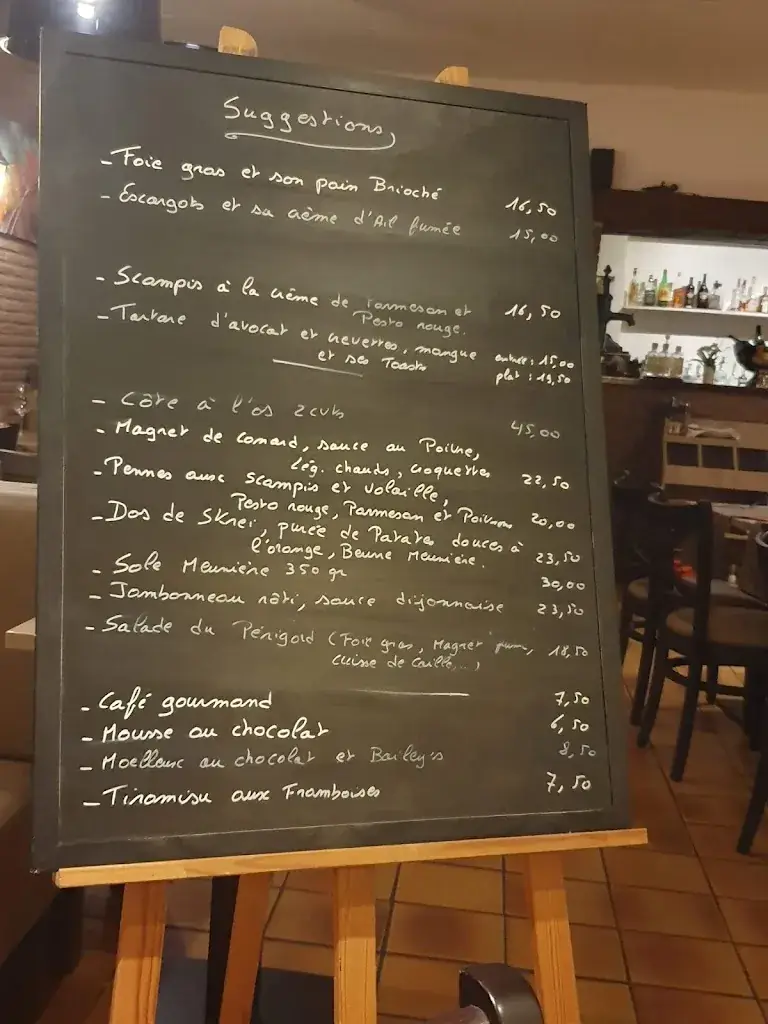 Suggestions
- Foie gras et son pain Brioché 16,50
- Escargots et sa crème d'Ail fumée 15,00
- Scampis à la crème de Parmesan et 16,50
Pesto rouge.
- Tartare d'avocat et crevettes, mangue entrée : 15,00
et ses Toasts plat : 19,50
- Côte à l'os 2 cvts 45,00
- Magret de canard, sauce au Poivre,
lég. chauds, croquettes 22,50
- Pennes aux scampis et volaille,
Pesto rouge, Parmesan et Poivrons 20,00
- Dos de Skrei, purée de Patates douces à
l'orange, Beurre Meunière. 23,50
- Sole Meunière 350 gr 30,00
- Jambonneau rôti, sauce dijonnaise 23,50
- Salade du Périgord (Foie gras, Magret fumé, 18,50
cuisse de caille,...)
- Café gourmand 7,50
- Mousse au chocolat 6,50
- Moelleux au chocolat et Bailey's 8,50
- Tiramisu aux Framboises 7,50